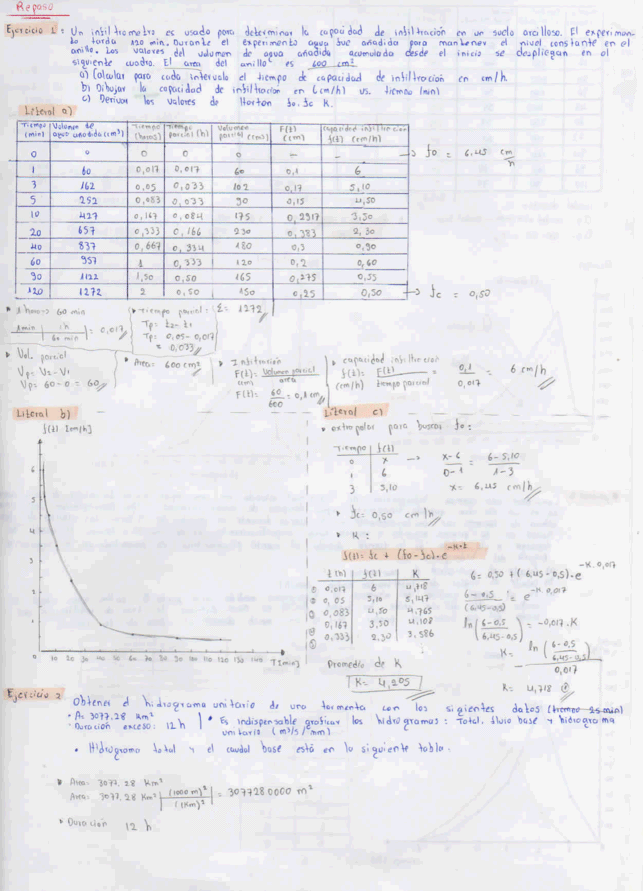 Repaso
Ejercicio 1: Un infiltrometro es usado para determinar la capacidad de infiltración en un suelo arcilloso. El experimen-
to tarda 120 min. Durante el experimento agua fue añadida para mantener el nivel constante en el
anillo. Los valores del volumen de agua añadida acumulada desde el inicio se despliegan en el
siguiente cuadro. El area del anillo es 600 cm².
a) Calcular para cada intervalo el tiempo de capacidad de infiltración en cm/h
b) Dibujar la capacidad de infiltración en f(cm/h) vs. tiempo (min)
c) Derivar los valores de Horton fo. fc K.
Literal a)
Tiempo (min) | Volumen de agua añadida (cm³) | Tiempo (horas) | Tiempo parcial (h) | Volumen parcial (cm³) | F(t) (cm) | Capacidad infiltracion f(t) (cm/h)
0 | 0 | 0 | 0 | 0 | — | — → fo = 6,45 cm/h
1 | 60 | 0,017 | 0,017 | 60 | 0,1 | 6
3 | 162 | 0,05 | 0,033 | 102 | 0,17 | 5,10
5 | 252 | 0,083 | 0,033 | 90 | 0,15 | 4,50
10 | 427 | 0,167 | 0,084 | 175 | 0,2917 | 3,50
20 | 657 | 0,333 | 0,166 | 230 | 0,383 | 2,30
40 | 837 | 0,667 | 0,334 | 180 | 0,3 | 0,90
60 | 957 | 1 | 0,333 | 120 | 0,2 | 0,60
90 | 1122 | 1,50 | 0,50 | 165 | 0,275 | 0,55
120 | 1272 | 2 | 0,50 | 150 | 0,25 | 0,50 → fc = 0,50
1 hora → 60 min
1 min | 1h / 60 min | = 0,017
Tiempo parcial:
Tp= t2 - t1
Tp: 0,05 - 0,017
= 0,033
Σ= 1272
Vol. parcial
Vp= V2 - V1
Vp= 60 - 0 = 60
Area= 600 cm²
Infiltración
F(t)(cm) = Volumen parcial / area
F(t)= 60/600 = 0,1 cm
capacidad infiltracion
f(t) (cm/h) = F(t) / tiempo parcial = 0,1 / 0,017 = 6 cm/h
Literal b)
f(t) [cm/h]
6
5
4
3
2
1
0 10 20 30 40 50 60 70 80 90 100 110 120 130 140 T[min]
Literal c)
extrapolar para buscar fo:
Tiempo | f(t)
0 | x →
1 | 6
3 | 5,10
x-6 / 0-1 = 6-5,10 / 1-3
x= 6,45 cm/h
fc= 0,50 cm/h
K:
f(t)= fc + (fo - fc) · e^-K·t
t (h) | f(t) | K
① 0,017 | 6 | 4,718
② 0,05 | 5,10 | 5,147
0,083 | 4,50 | 4,765
0,167 | 3,50 | 4,108
0,333 | 2,30 | 3,586
Promedio de K
K= 4,205
6= 0,50 + (6,45 - 0,5) · e^-K·0,017
6-0,5 / (6,45-0,5) = e^-K·0,017
ln (6-0,5 / 6,45-0,5) = -0,017·K
K= - ln (6-0,5 / 6,45-0,5) / 0,017
K= 4,718 ①
Ejercicio 2 Obtener el hidrograma unitario de una tormenta con los sigientes datos (tremeo 25 min)
• A= 3077.28 Km²
• Duración exceso: 12 h
• Es indispensable graficar los hidrogramas: Total, flujo base y hidrograma
unitario (m³/s/mm)
• Hidrograma total y el caudal base está en la siguiente tabla:
Area: 3077.28 Km²
Area: 3077.28 Km² | (1000 m)² / (1Km)² | = 3077280000 m²
Duración 12 h